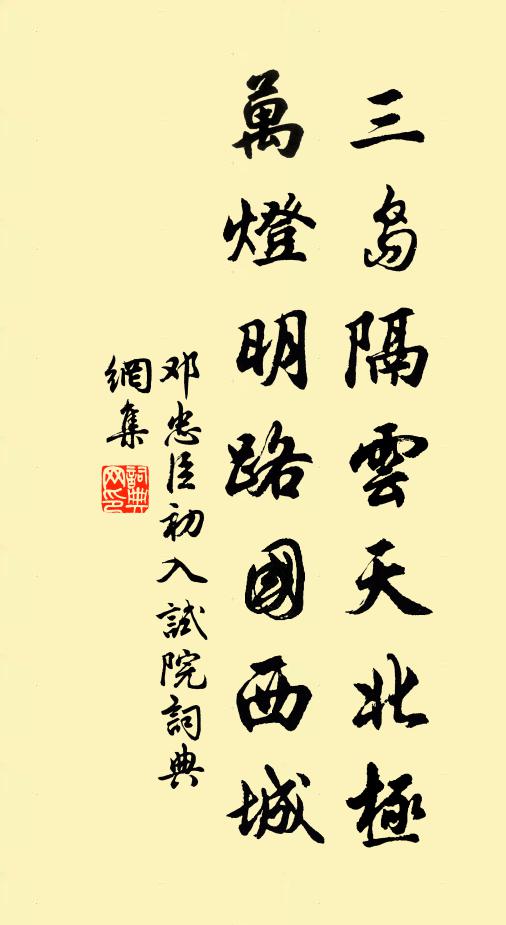 三岛隔雲天北極
萬燈明路國西城
邓忠臣初入試院詞典
網集
詞典
网印